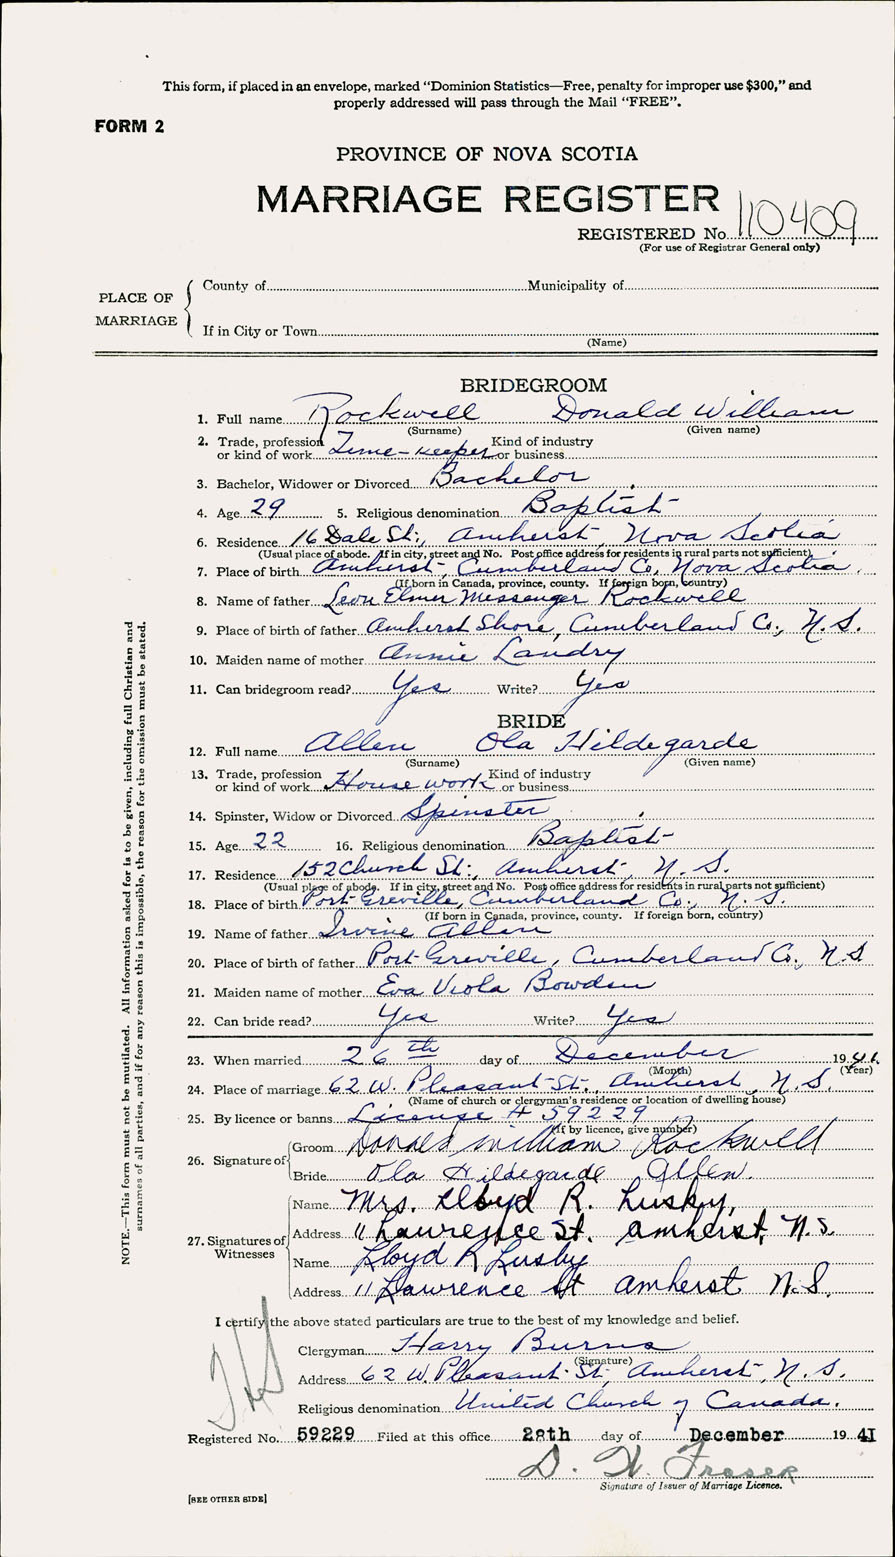 This form, if placed in an envelope, marked "Dominion Statistics—Free, penalty for improper use $300," and
properly addressed will pass through the Mail "FREE".
FORM 2
PROVINCE OF NOVA SCOTIA
MARRIAGE REGISTER
REGISTERED No. 110409
(For use of Registrar General only)
PLACE OF MARRIAGE
County of Municipality of
If in City or Town
(Name)
BRIDEGROOM
1. Full name Rockwell Donald William
(Surname) (Given name)
2. Trade, profession or kind of work Time-keeper Kind of industry or business
3. Bachelor, Widower or Divorced Bachelor
4. Age 29 5. Religious denomination Baptist
6. Residence 16 Dale St., Amherst, Nova Scotia
(Usual place of abode. If in city, street and No. Post office address for residents in rural parts not sufficient)
7. Place of birth Amherst, Cumberland Co. Nova Scotia.
(If born in Canada, province, county. If foreign born, country)
8. Name of father Leon Elmer Messenger Rockwell
9. Place of birth of father Amherst Shore, Cumberland Co., N.S.
10. Maiden name of mother Annie Landry
11. Can bridegroom read? Yes Write? Yes
BRIDE
12. Full name Allen Ola Hildegarde
(Surname) (Given name)
13. Trade, profession or kind of work House work Kind of industry or business
14. Spinster, Widow or Divorced Spinster
15. Age 22 16. Religious denomination Baptist
17. Residence 152 Church St., Amherst, N.S.
(Usual place of abode. If in city, street and No. Post office address for residents in rural parts not sufficient)
18. Place of birth Port Greville, Cumberland Co., N.S.
(If born in Canada, province, county. If foreign born, country)
19. Name of father Irvine Allen
20. Place of birth of father Port Greville, Cumberland Co., N.S
21. Maiden name of mother Eva Viola Bowden
22. Can bride read? Yes Write? Yes
23. When married 26th day of December 1941.
(Month) (Year)
24. Place of marriage 62 W. Pleasant St., Amherst, N.S.
(Name of church or clergyman's residence or location of dwelling house)
25. By licence or banns License # 59229
(If by licence, give number)
26. Signature of
Groom Donald William Rockwell
Bride Ola Hildegarde Allen.
27. Signatures of Witnesses
Name Mrs. Lloyd R. Lusby,
Address 11 Lawrence St. Amherst, N.S.
Name Lloyd R Lusby
Address 11 Lawrence St Amherst N.S.
I certify the above stated particulars are true to the best of my knowledge and belief.
Clergyman Harry Burns
(Signature)
Address 62 W. Pleasant St., Amherst, N.S.
Religious denomination United Church of Canada.
Registered No. 59229 Filed at this office 28th day of December 1941
D. W. Fraser
Signature of Issuer of Marriage Licence.
[SEE OTHER SIDE]
NOTE.—This form must not be mutilated. All information asked for is to be given, including full Christian and
surnames of all parties, and if for any reason this is impossible, the reason for the omission must be stated.